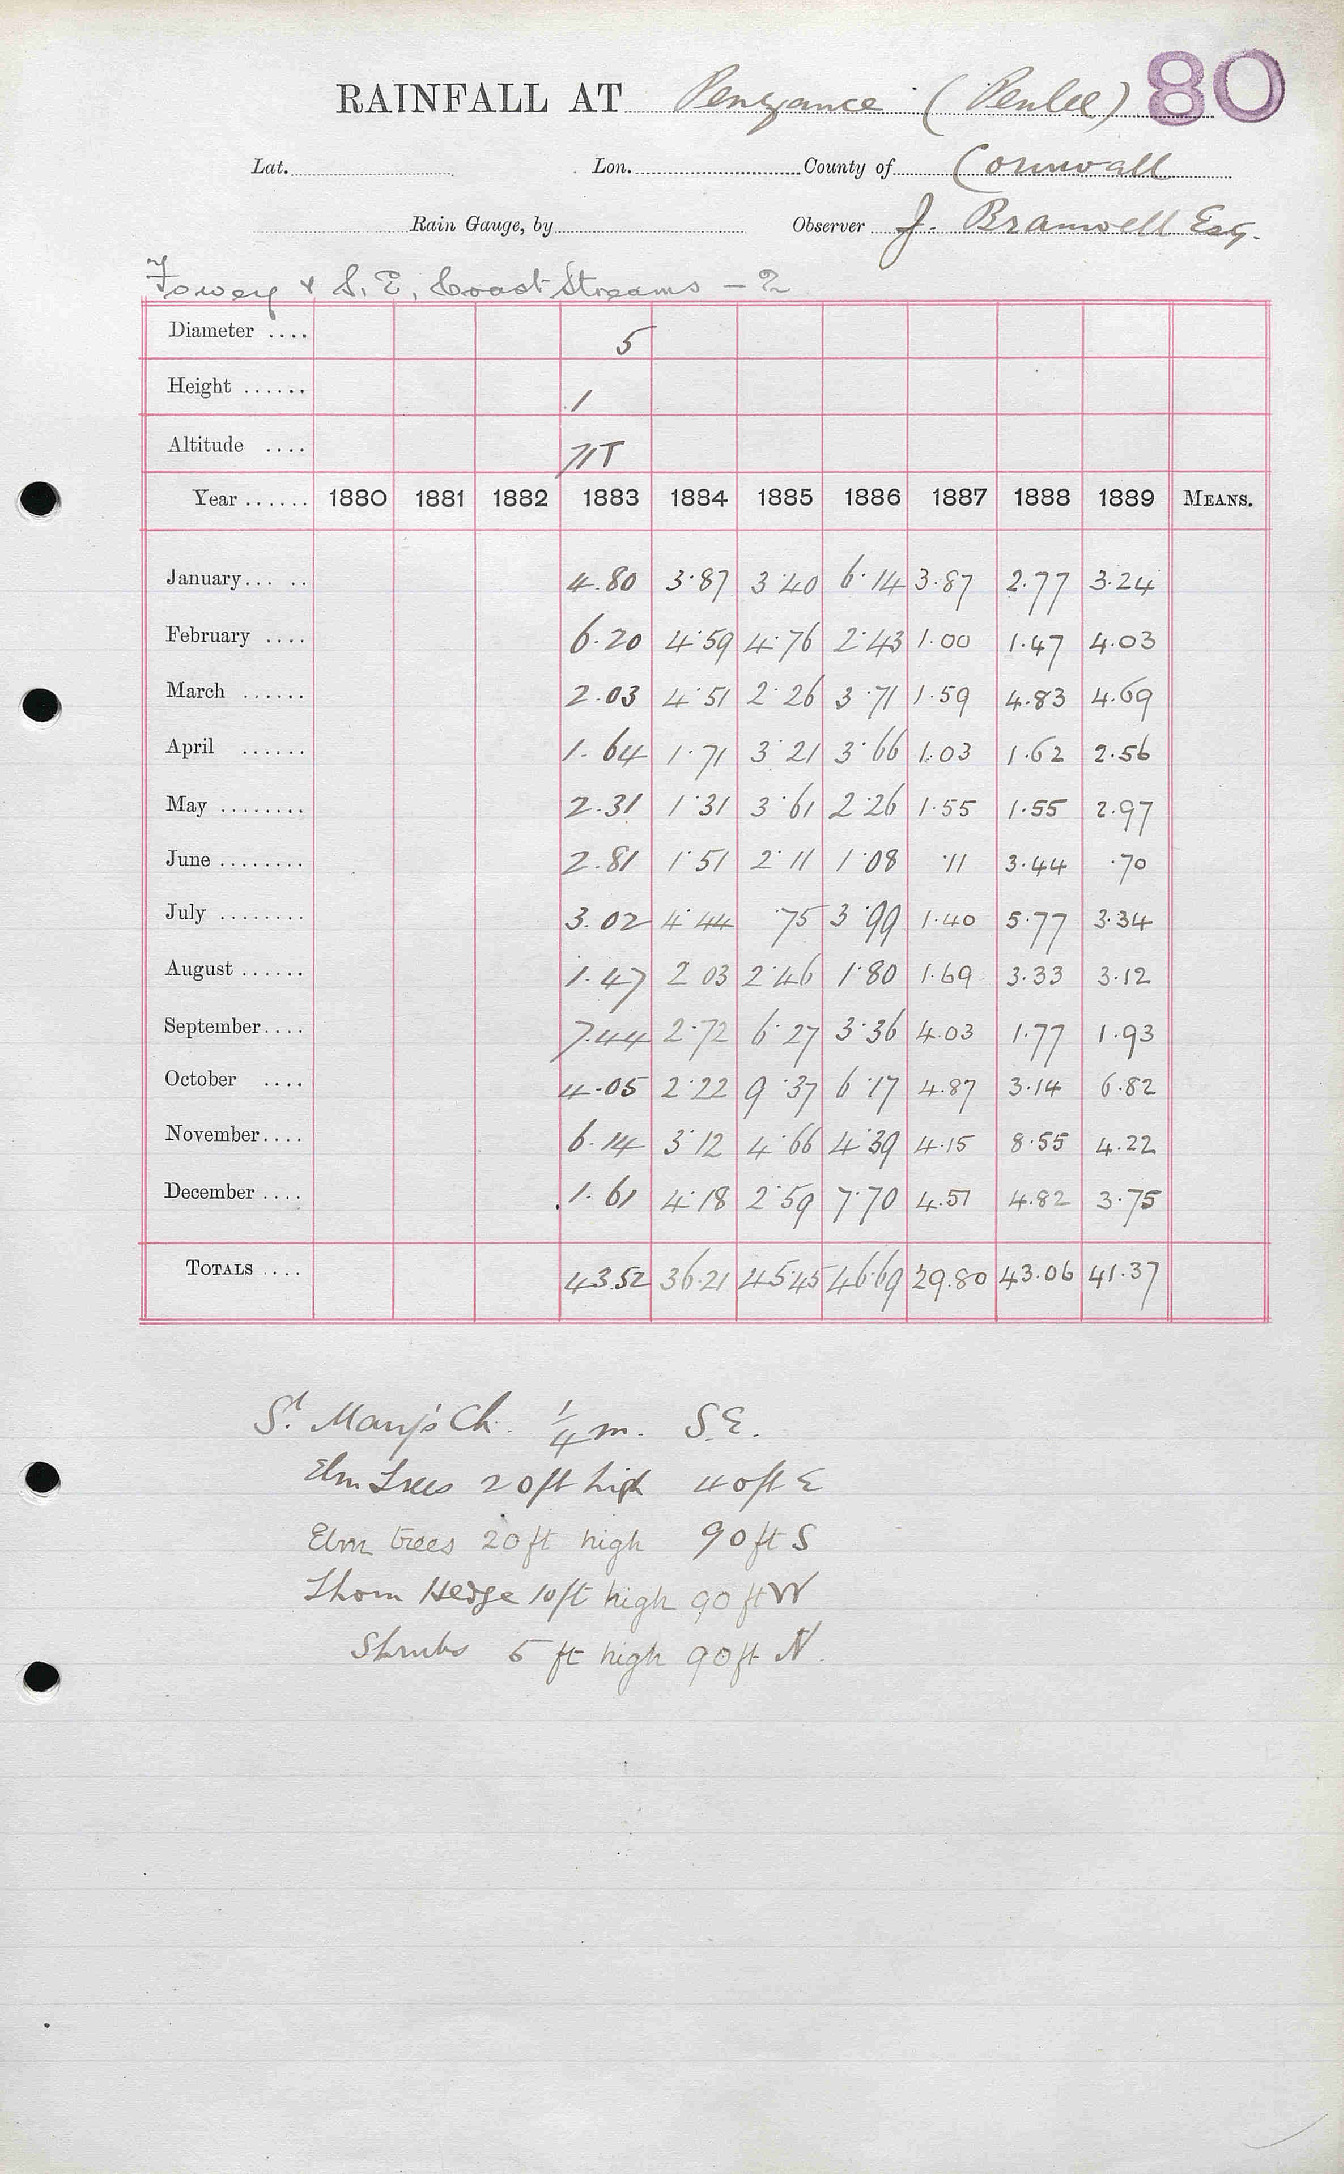 RAINFALL AT Penzance (Penlee) 80
Lat. Lon. County of Cornwall
Rain Gauge, by Observer J. Bramwell Esq.
Fowey & S.E. Coast Streams - 2
Diameter .... 5
Height ...... 1
Altitude ....
Year ...... 1880 1881 1882 1883 1884 1885 1886 1887 1888 1889 MEANS.
January... .. 4.80 3.87 3.40 6.14 3.87 2.77 3.24
February .... 6.20 4.59 4.76 2.43 1.00 1.47 4.03
March ...... 2.03 4.51 2.26 3.71 1.59 4.83 4.69
April ...... 1.64 1.71 3.21 3.66 1.03 1.62 2.56
May ........ 2.31 1.31 3.61 2.26 1.55 1.55 2.97
June ........ 2.81 1.51 2.11 1.08 .11 3.44 .70
July ........ 3.02 4.44 .75 3.99 1.40 5.77 3.34
August ...... 1.47 2 03 2.46 1.80 1.69 3.33 3.12
September.... 7.44 2.72 6.27 3.36 4.03 1.77 1.93
October .... 4.05 2.22 9.37 6.17 4.87 3.14 6.82
November.... 6.14 3.12 4.66 4.39 4.15 8.55 4.22
December .... 1.61 4.18 2.59 7.70 4.51 4.82 3.75
TOTALS .... 43.52 36.21 45.45 46.69 29.80 43.06 41.37
St. Mary's Ch. 1/4 m. S.E.
Elm Trees 20ft high 40ft E
Elm trees 20ft high 90ft S
Thorn Hedge 10ft high 90ft W
Shrubs 5 ft high 90ft N.